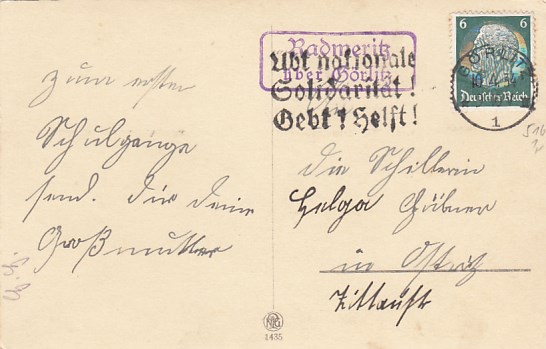 zum ersten
Schulgange
send. dir deine
Großmutter
Radmeritz
über Görlitz
Übt nationale
Solidarität!
Gebt! Helft!
6 6
GÖRLITZ
10.4.34
1
Deutsches Reich
516
die Schülerin
Helga Hübner
in Ostritz
Zittaustr
NTG
1435